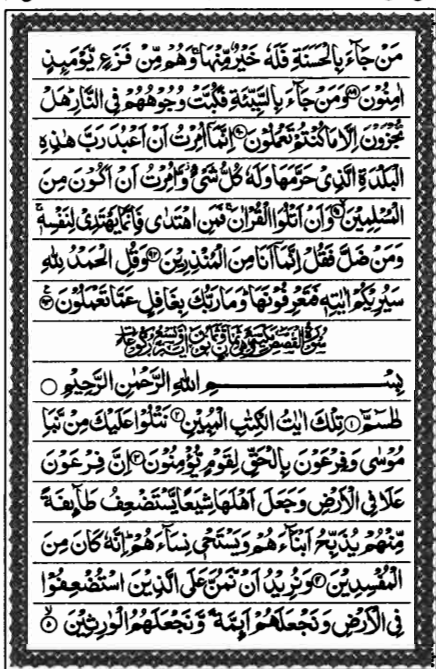 مَنْ جَآءَ بِالْحَسَنَةِ فَلَهٗ خَيْرٌ مِّنْهَا ۚ وَهُمْ مِّنْ فَزَعٍ يَّوْمَىِٕذٍ
اٰمِنُوْنَ ﴿٨٩﴾ وَمَنْ جَآءَ بِالسَّيِّئَةِ فَكُبَّتْ وُجُوْهُهُمْ فِى النَّارِ هَلْ
تُجْزَوْنَ اِلَّا مَا كُنْتُمْ تَعْمَلُوْنَ ﴿٩٠﴾ اِنَّمَآ اُمِرْتُ اَنْ اَعْبُدَ رَبَّ هٰذِهِ
الْبَلْدَةِ الَّذِىْ حَرَّمَهَا وَلَهٗ كُلُّ شَىْءٍ ۖ وَّاُمِرْتُ اَنْ اَكُوْنَ مِنَ
الْمُسْلِمِيْنَ ﴿٩١﴾ وَاَنْ اَتْلُوَا الْقُرْاٰنَ ۚ فَمَنِ اهْتَدٰى فَاِنَّمَا يَهْتَدِىْ لِنَفْسِهٖ ۚ
وَمَنْ ضَلَّ فَقُلْ اِنَّمَآ اَنَا مِنَ الْمُنْذِرِيْنَ ﴿٩٢﴾ وَقُلِ الْحَمْدُ لِلّٰهِ
سَيُرِيْكُمْ اٰيٰتِهٖ فَتَعْرِفُوْنَهَا ؕ وَمَا رَبُّكَ بِغَافِلٍ عَمَّا تَعْمَلُوْنَ ﴿٩٣﴾
سُوْرَةُ الْقَصَصِ مَكِّيَّةٌ وَّهِىَ ثَمَانٌ وَّثَمَانُوْنَ اٰيَةً وَّتِسْعُ رُكُوْعَاتٍ
بِسْمِ اللهِ الرَّحْمٰنِ الرَّحِيْمِ
طٰسٓمّٓ ﴿١﴾ تِلْكَ اٰيٰتُ الْكِتٰبِ الْمُبِيْنِ ﴿٢﴾ نَتْلُوْا عَلَيْكَ مِنْ نَّبَاِ
مُوْسٰى وَفِرْعَوْنَ بِالْحَقِّ لِقَوْمٍ يُّؤْمِنُوْنَ ﴿٣﴾ اِنَّ فِرْعَوْنَ
عَلَا فِى الْاَرْضِ وَجَعَلَ اَهْلَهَا شِيَعًا يَّسْتَضْعِفُ طَآىِٕفَةً
مِّنْهُمْ يُذَبِّحُ اَبْنَآءَهُمْ وَيَسْتَحْىٖ نِسَآءَهُمْ ؕ اِنَّهٗ كَانَ مِنَ
الْمُفْسِدِيْنَ ﴿٤﴾ وَنُرِيْدُ اَنْ نَّمُنَّ عَلَى الَّذِيْنَ اسْتُضْعِفُوْا
فِى الْاَرْضِ وَنَجْعَلَهُمْ اَىِٕمَّةً وَّنَجْعَلَهُمُ الْوٰرِثِيْنَ ﴿٥﴾